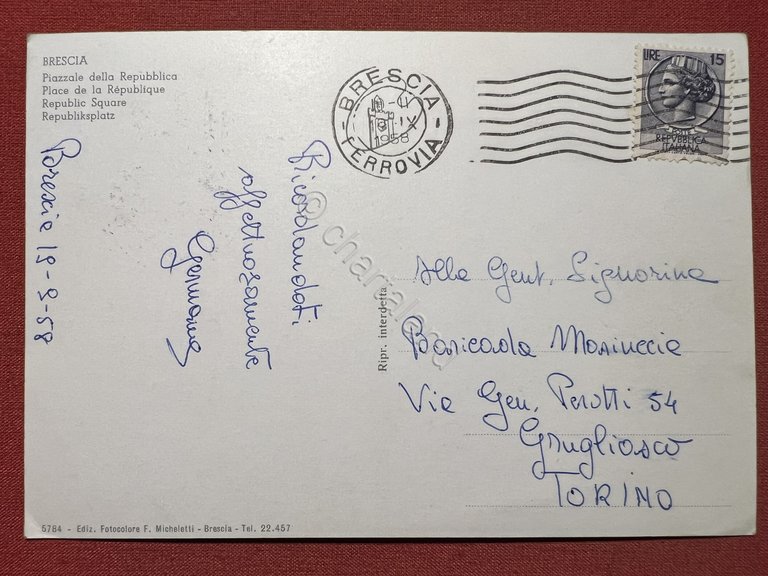 BRESCIA
Piazzale della Repubblica
Place de la République
Republic Square
Republiksplatz
Brescia 19-9-58
Ricordandoti
affettuosamente
Germana
BRESCIA
IX
1958
FERROVIA
LIRE 15
REPUBBLICA
ITALIANA
Ripr. interdetta
Alla Gent. Signorina
Baricada Mariuccia
Via Gen. Perotti 54
Grugliasco
TORINO
5784 - Ediz. Fotocolore F. Micheletti - Brescia - Tel. 22.457